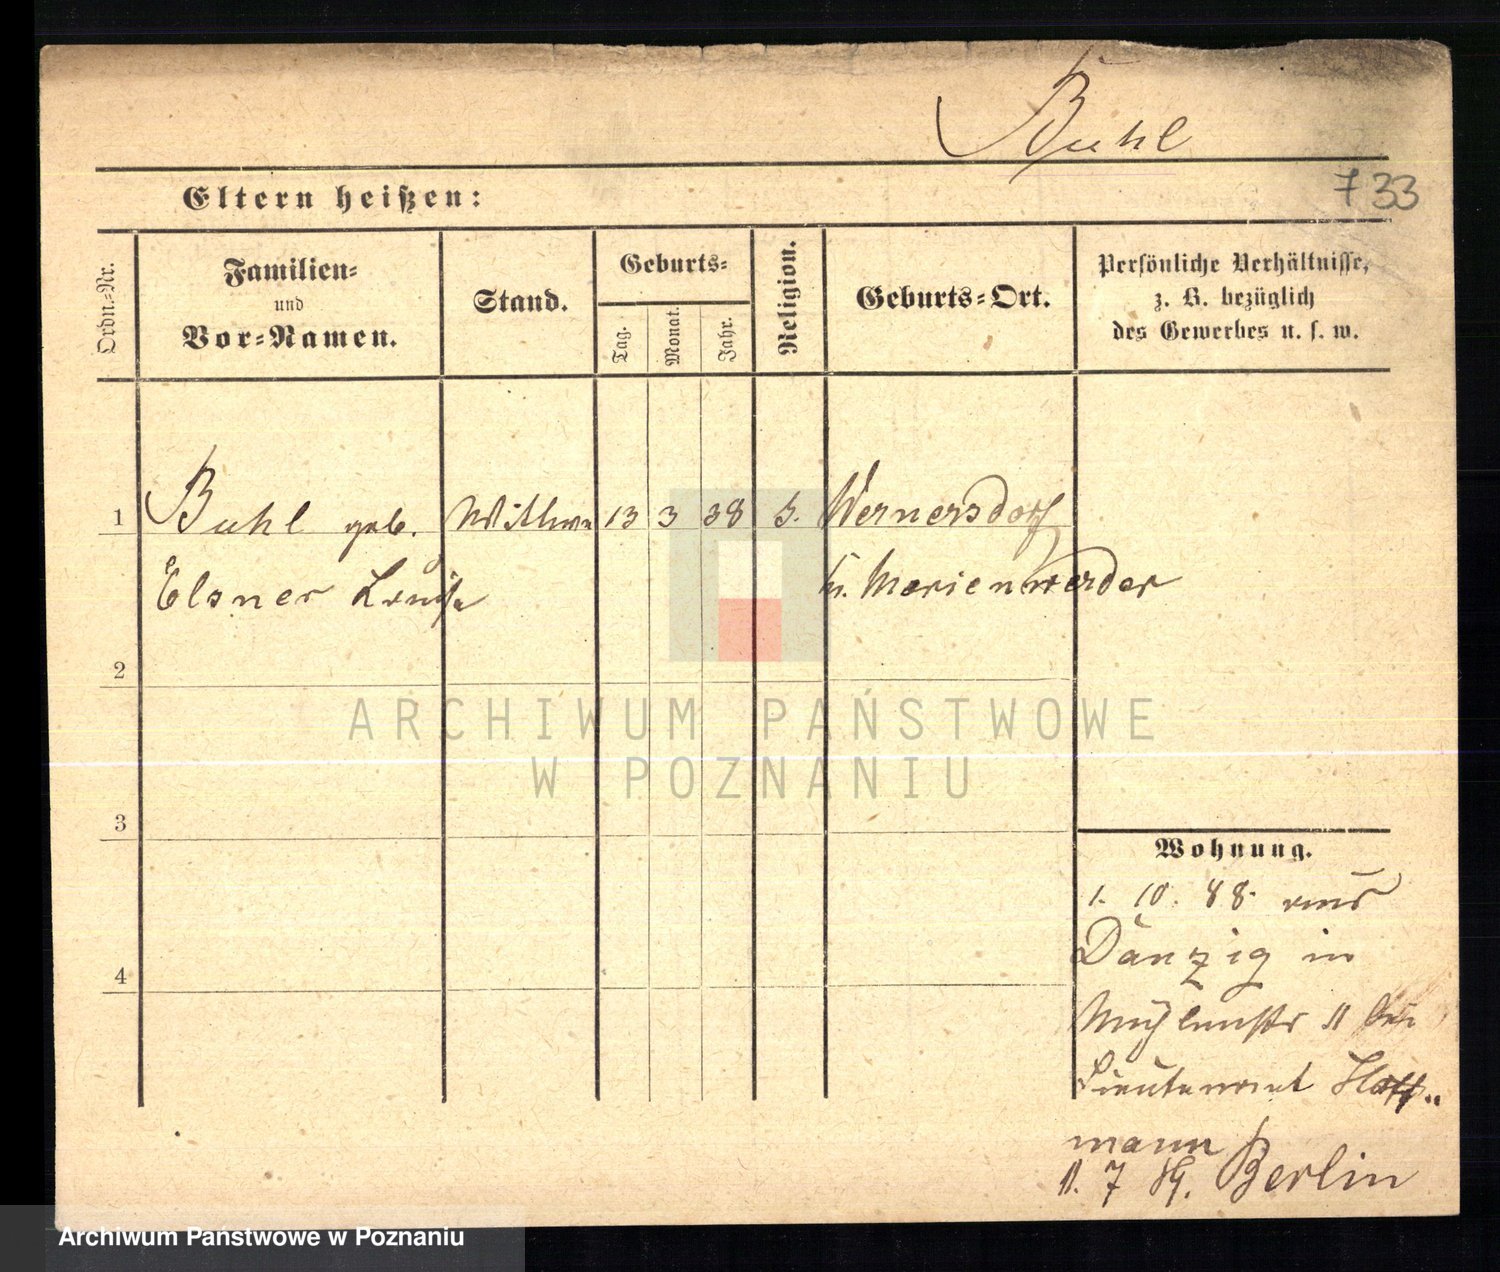 Buhl
733
Eltern heißen:
Ordn.-Nr.
Familien-
und
Vor-Namen.
Stand.
Geburts-
Tag.
Monat.
Jahr.
Religion.
Geburts-Ort.
Persönliche Verhältnisse,
z. B. bezüglich
des Gewerbes u. s. w.
1 Buhl geb. Wittwe 13 3 38 Wernersdorf
Elsner Louise Kr. Marienwerder
2
ARCHIWUM PAŃSTWOWE
W POZNANIU
3
Wohnung.
1. 10. 88. aus
Danzig in
Mühlenstr 11 bei
Lieutenant Hoff-
mann
11. 7 89. Berlin
4
Archiwum Państwowe w Poznaniu